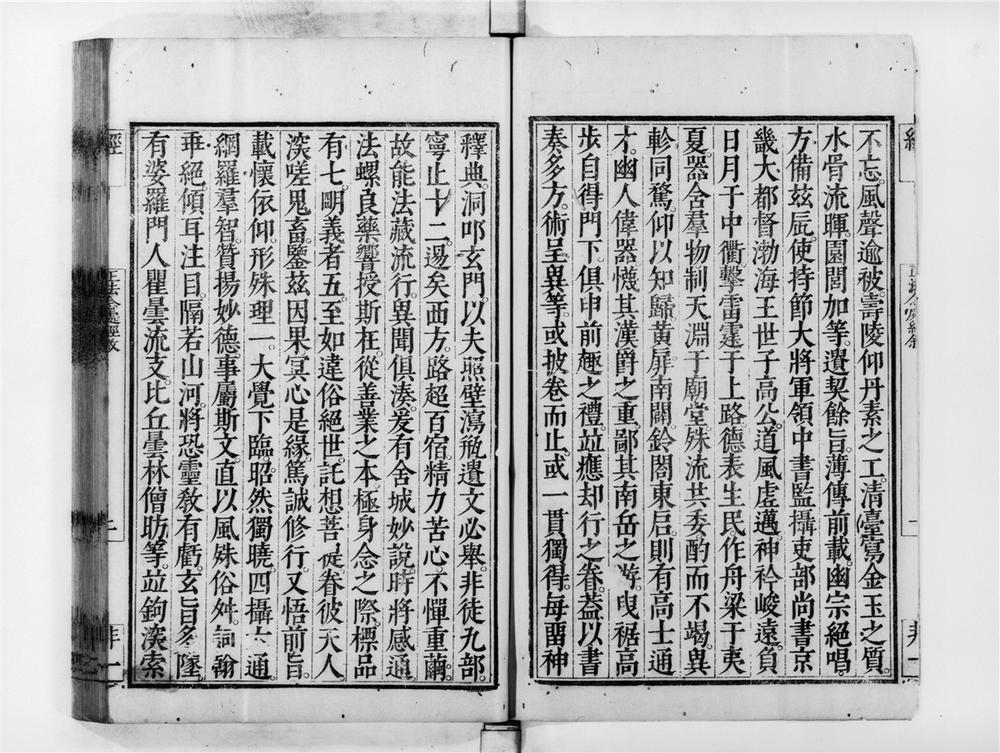 不忘。風聲逾被。壽陵仰丹素之工。清臺寫金玉之質。
水骨流暉。園閣加等。遺契餘旨。薄傳前載。幽宗絕唱。
方備茲辰。使持節大將軍領中書監攝吏部尚書京
畿大都督渤海王世子高公。道風虛邁。神衿峻遠。負
日月于中衢。擊雷霆于上路。德表生民。作舟梁于夷
夏。器含羣物。制天淵于廟堂。殊流共委。酌而不竭。異
軫同騖。仰以知歸。黃扉南闢。鈴閣東啓。則有高士通
才。幽人偉器。懱其漢爵之重。鄙其南岳之游。曳裾高
步。自得門下。俱申前趣之禮。並應却行之眷。蓋以書
奏多方。術呈異等。或披卷而止。或一貫獨得。每留神
釋典。洞叩玄門。以夫照壁瀉瓶。遺文必舉。非徒九部。
寧止十二。邈矣西方。路超百宿。精力苦心。不憚重繭。
故能法藏流行。異聞俱湊。爰有舍城妙說。時將感通。
法螺良藥。響授斯在。從善業之本。極身念之際。標品
有七。明義者五。至如違俗絕世。託想菩提。眷彼天人。
深嗟鬼畜。鑒茲因果。冥心是緣。篤誠修行。又悟前旨。
載懷依仰。形殊理一。大覺下臨。昭然獨曉。四攝六通。
綱羅羣智。贊揚妙德。事屬斯文。直以風殊俗舛。詞翰
乖絕。傾耳注目。隔若山河。將恐靈教有虧。玄旨多墜。
有婆羅門人瞿曇流支。比丘曇林僧昉等。並鉤深索